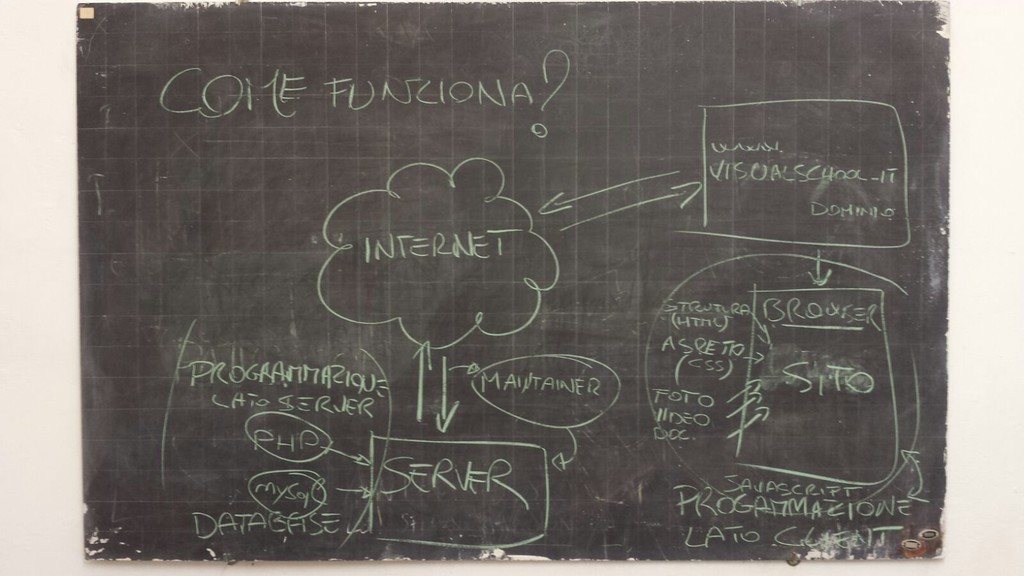 COME FUNZIONA?
www.
VISUALSCHOOL.IT
DOMINIO
INTERNET
BROWSER
SITO
STRUTURA
(HTML)
ASPETTO
(CSS)
FOTO
VIDEO
DOC.
JAVASCRIPT
PROGAMMAZIONE
LATO CLIENT
MAINTAINER
PROGRAMMAZIONE
LATO SERVER
PHP
MySQL
DATABASE
SERVER